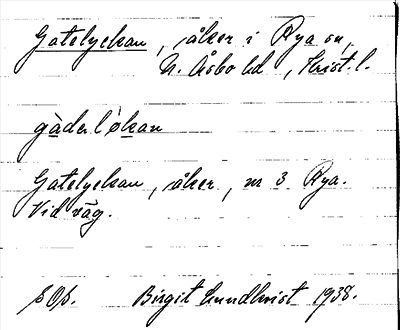 Gatelyckan, åker i Rya sn,
N. Åsbo hd, Krist. l.
gàdəlˈøkan
Gatelyckan, åker, nr 3 Rya.
Vid väg.
SOS. Birgit Lundkvist 1938.